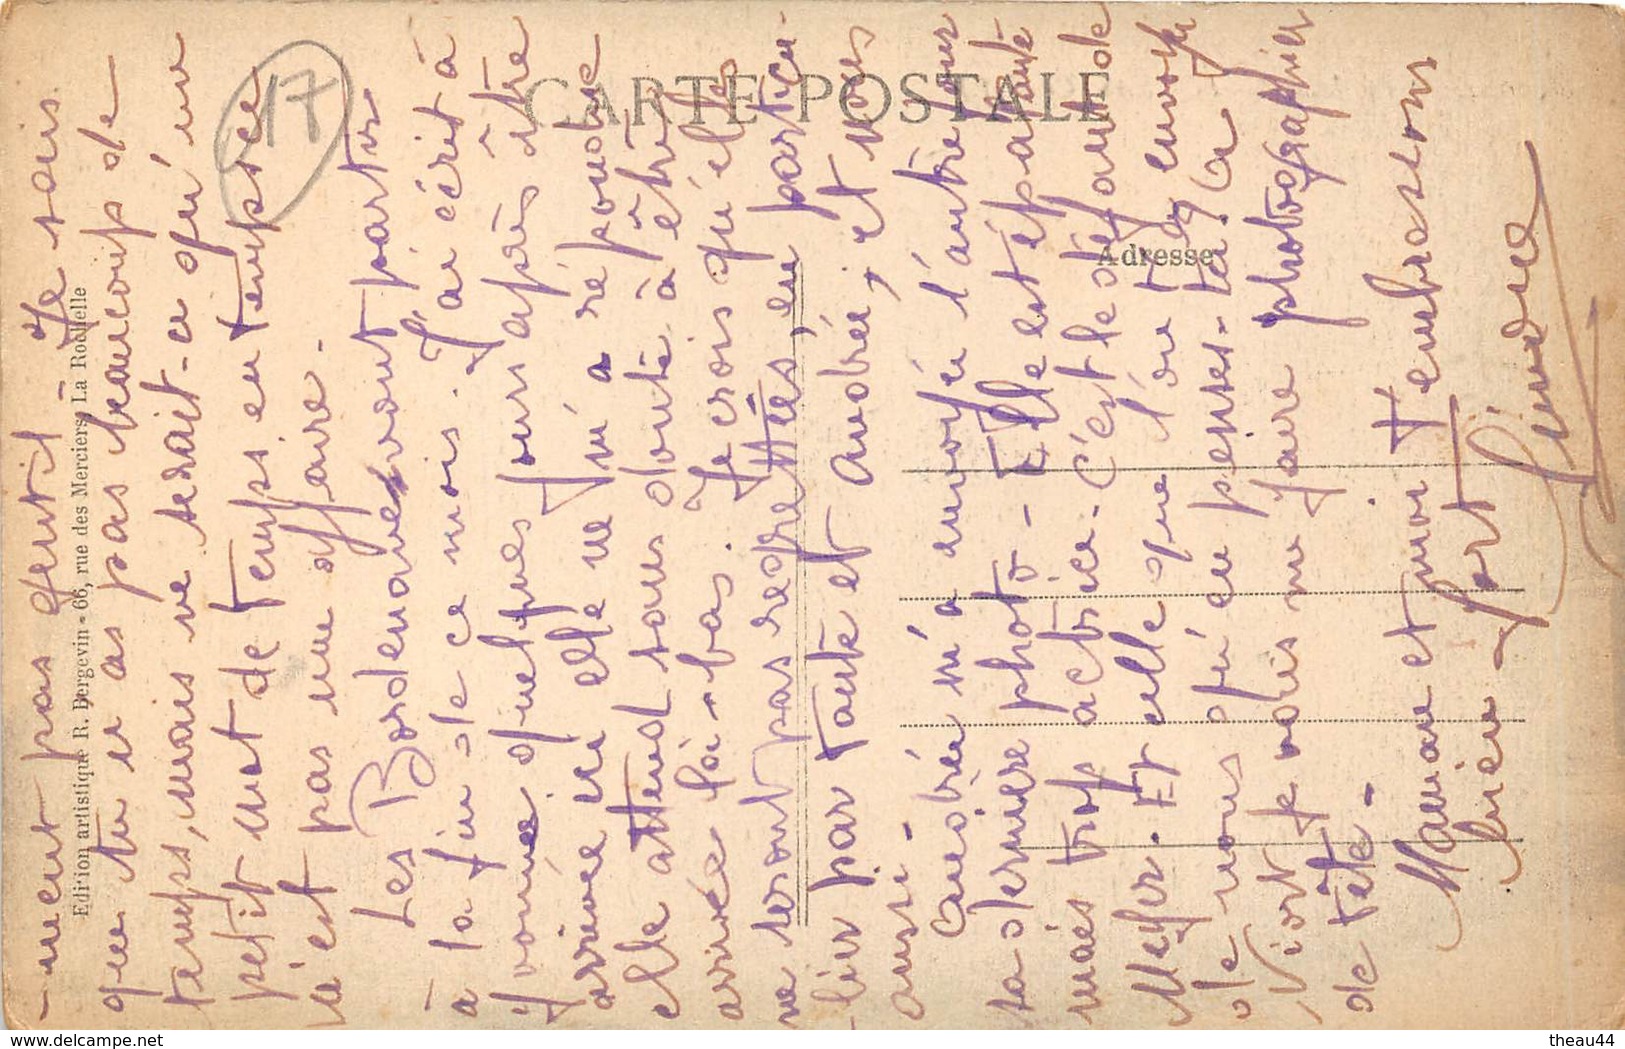 -ment pas gentil. Je sais
que tu n'as pas beaucoup de
temps, mais ne serait-ce qu'un
petit mot de temps en temps ce
n'est pas une affaire.
Les Bordenave vont partir
à la fin de ce mois. J'ai écrit à
Yvonne quelques jours après être
arrivée ici elle ne m'a répondu
elle attend sans doute à être
arrivée là-bas. Je crois qu'elles
ne seront pas regrettées, en particu-
-lier par tante et Andrée, et nous
aussi -
Andrée m'a envoyé l'autre jour
sa dernière photo - Elle est épatante
mais trop actrice. C'est le défaut de
Meyer. Et celle que l'on t'a envoyé
de nous qu'en penses-tu? A
Niort je vais me faire photographier
de tête -
Maman et moi t'embrassons
bien fort
Simone
CARTE POSTALE
Adresse
Edition artistique R. Bergevin - 66, rue des Merciers, La Rochelle
17
www.delcampe.net
theau44